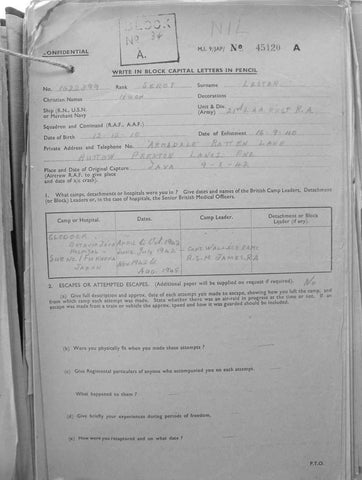 BLOCK
No 34
A.
NIL
CONFIDENTIAL
M.I. 9/JAP/ No 45120 A
WRITE IN BLOCK CAPITAL LETTERS IN PENCIL
No. Rank SERGT Surname LESTER
Christian Names Decorations
Ship (R.N., U.S.N. or Merchant Navy) Unit & Div. (Army) 21st L.A.A. Regt R.A.
Squadron and Command (R.A.F., A.A.F.)
Date of Birth 12.12.10 Date of Enlistment 16.9.40
Private Address and Telephone No. ARMADALE ROTTEN LANE
HUTTON PRESTON LANCS. ENG
Place and Date of Original Capture JAVA 9-3-42
(Aircrew R.A.F. to give place and date of a/c crash).
1. What camps, detachments or hospitals were you in? Give dates and names of the British Camp Leaders, Detachment (or Block) Leaders or, in the case of hospitals, the Senior British Medical Officers.
Camp or Hospital. Dates. Camp Leader. Detachment or Block Leader (if any).
BATAVIA JAVA APRIL to Oct. 1942
June July 1942
JAPAN Nov 1942 to Aug. 1945
R.S.M. JAMES. RA
2. ESCAPES OR ATTEMPTED ESCAPES. (Additional paper will be supplied on request if required). No
(a) Give full description and approx. date of each attempt you made to escape, showing how you left the camp, and from which camp each attempt was made. State whether there was an air-raid in progress at the time or not. If an escape was made from a train or vehicle, the approx. speed and how it was guarded should be included.
(b) Were you physically fit when you made these attempts?
(c) Give Regimental particulars of anyone who accompanied you on each attempt.
What happened to them?
(d) Give briefly your experiences during periods of freedom.
(e) How were you recaptured and on what date?
P.T.O.